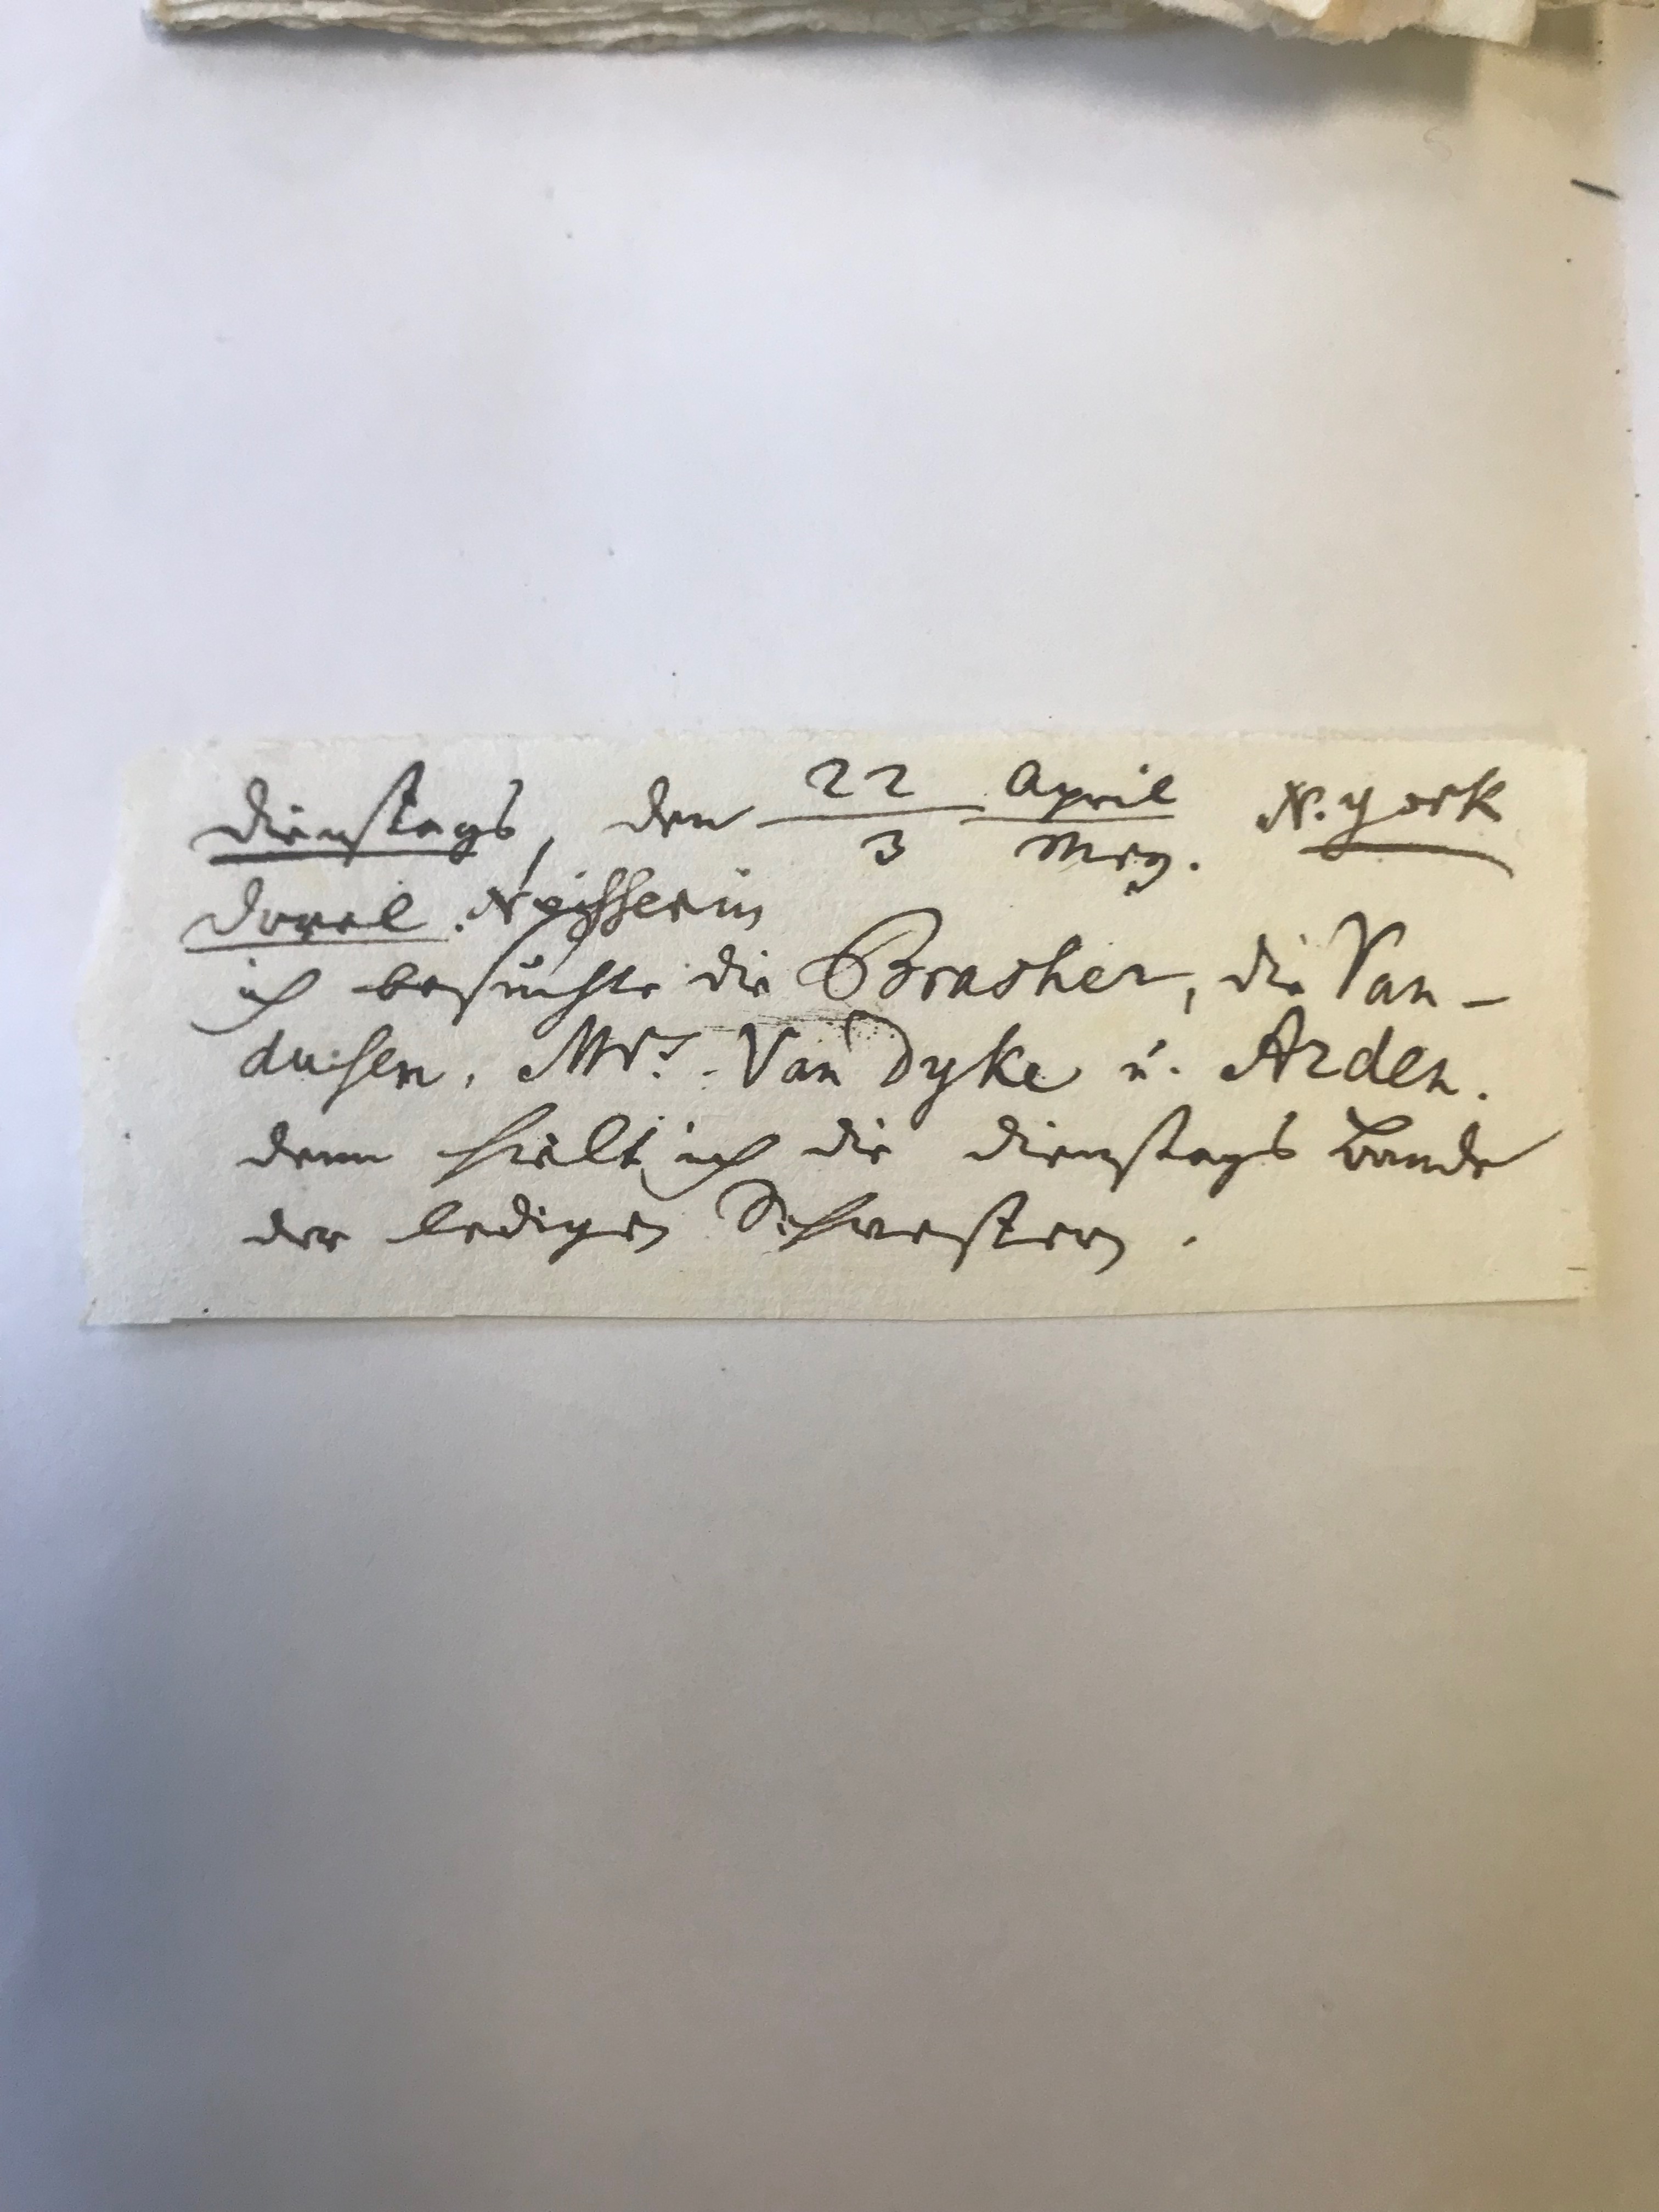 Dienstags, den 22 April N. York
3 May.
Dorel. Neisserin
ich besuchte die Brasher, die Van-
dusen, Mrs. Van Dyke u. Arden.
denn hielt ich die Dienstags Bande
der ledigen Schwestern.